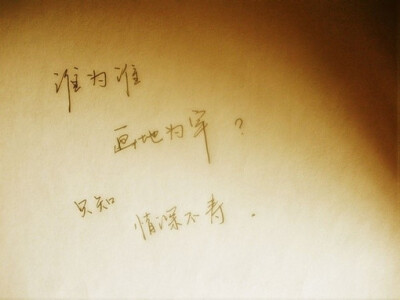 谁为谁
画地为牢?
只知
情深不寿.